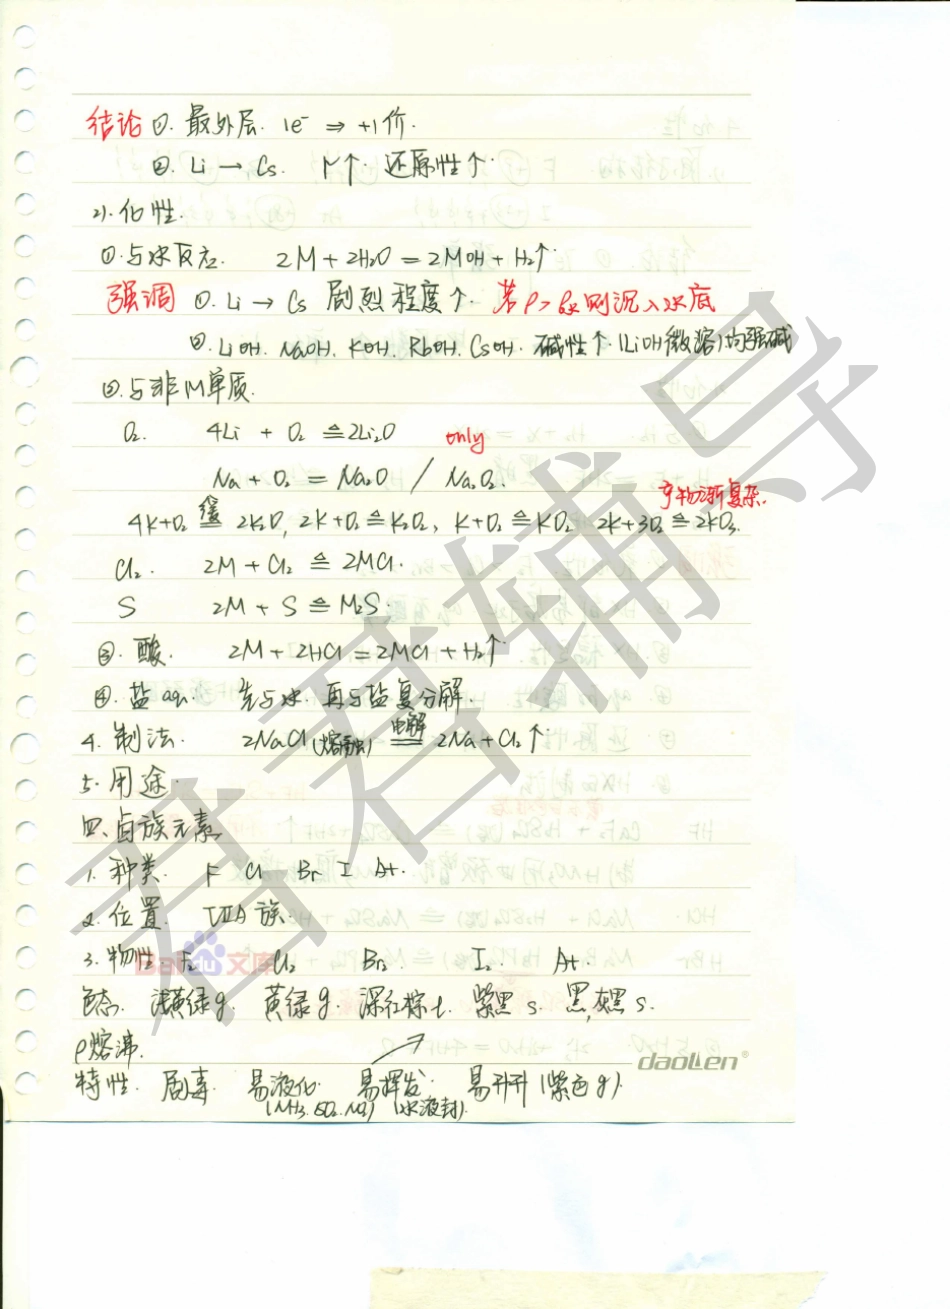 结论 ①. 最外层. 1e⁻ ⇒ +1价.
②. Li → Cs. M↑. 还原性↑.
2). 化性.
①. 与水反应. 2M + 2H₂O = 2MOH + H₂↑.
强调 ①. Li → Cs 剧烈程度↑. 若ρ>ρ水则沉入水底
②. LiOH. NaOH. KOH. RbOH. CsOH. 碱性↑. (LiOH微溶)均强碱
②. 与非M单质.
O₂. 4Li + O₂ ≜ 2Li₂O only
Na + O₂ = Na₂O / Na₂O₂.
产物渐复杂.
4K+O₂ 缓 2K₂O, 2K+O₂ ≜ K₂O₂, K+O₂ ≜ KO₂ 2K+3O₂ ≜ 2KO₃.
Cl₂. 2M + Cl₂ ≜ 2MCl.
S 2M + S ≜ M₂S.
③. 酸. 2M + 2HCl = 2MCl + H₂↑.
④. 盐aq. 先与水. 再与盐复分解.
4. 制法. 2NaCl(熔融) 电解 2Na + Cl₂↑.
5. 用途.
四. 卤族元素
1. 种类. F Cl Br I At.
2. 位置. ⅦA族.
3. 物性 F₂ Cl₂ Br₂ I₂ At.
Baidu文库
色态. 浅黄绿g. 黄绿g. 深红棕l. 紫黑s. 黑,灰黑s.
ρ熔沸.
daoLen®
特性. 剧毒. 易液化. 易挥发. 易升升(紫色g).
(NH₃. SO₂. NO₂) (水液封).
君君辅导